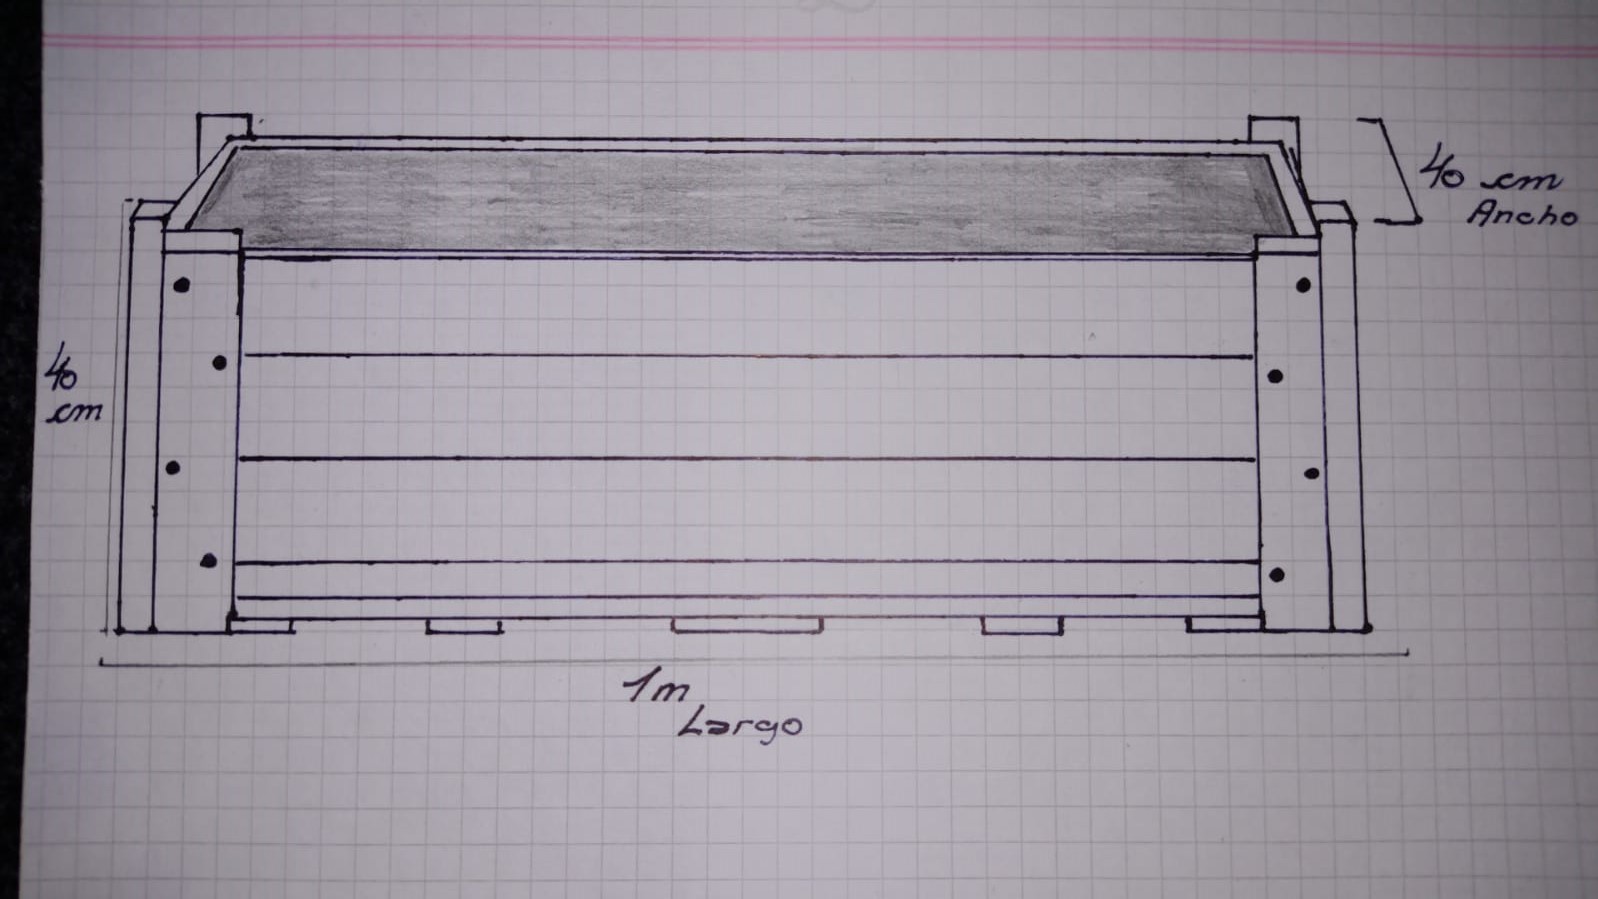 40 cm
Ancho
40
cm
1m
Largo